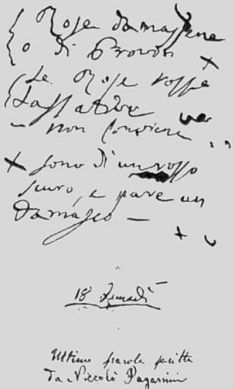 Rose damascene
o di Provins
Le Rose rosse
Lassative
non conviene
sono di un rosso
scuro, e pare un
Damasco —
18 Lunedì
Ultime parole scritte
da Niccolò Paganini